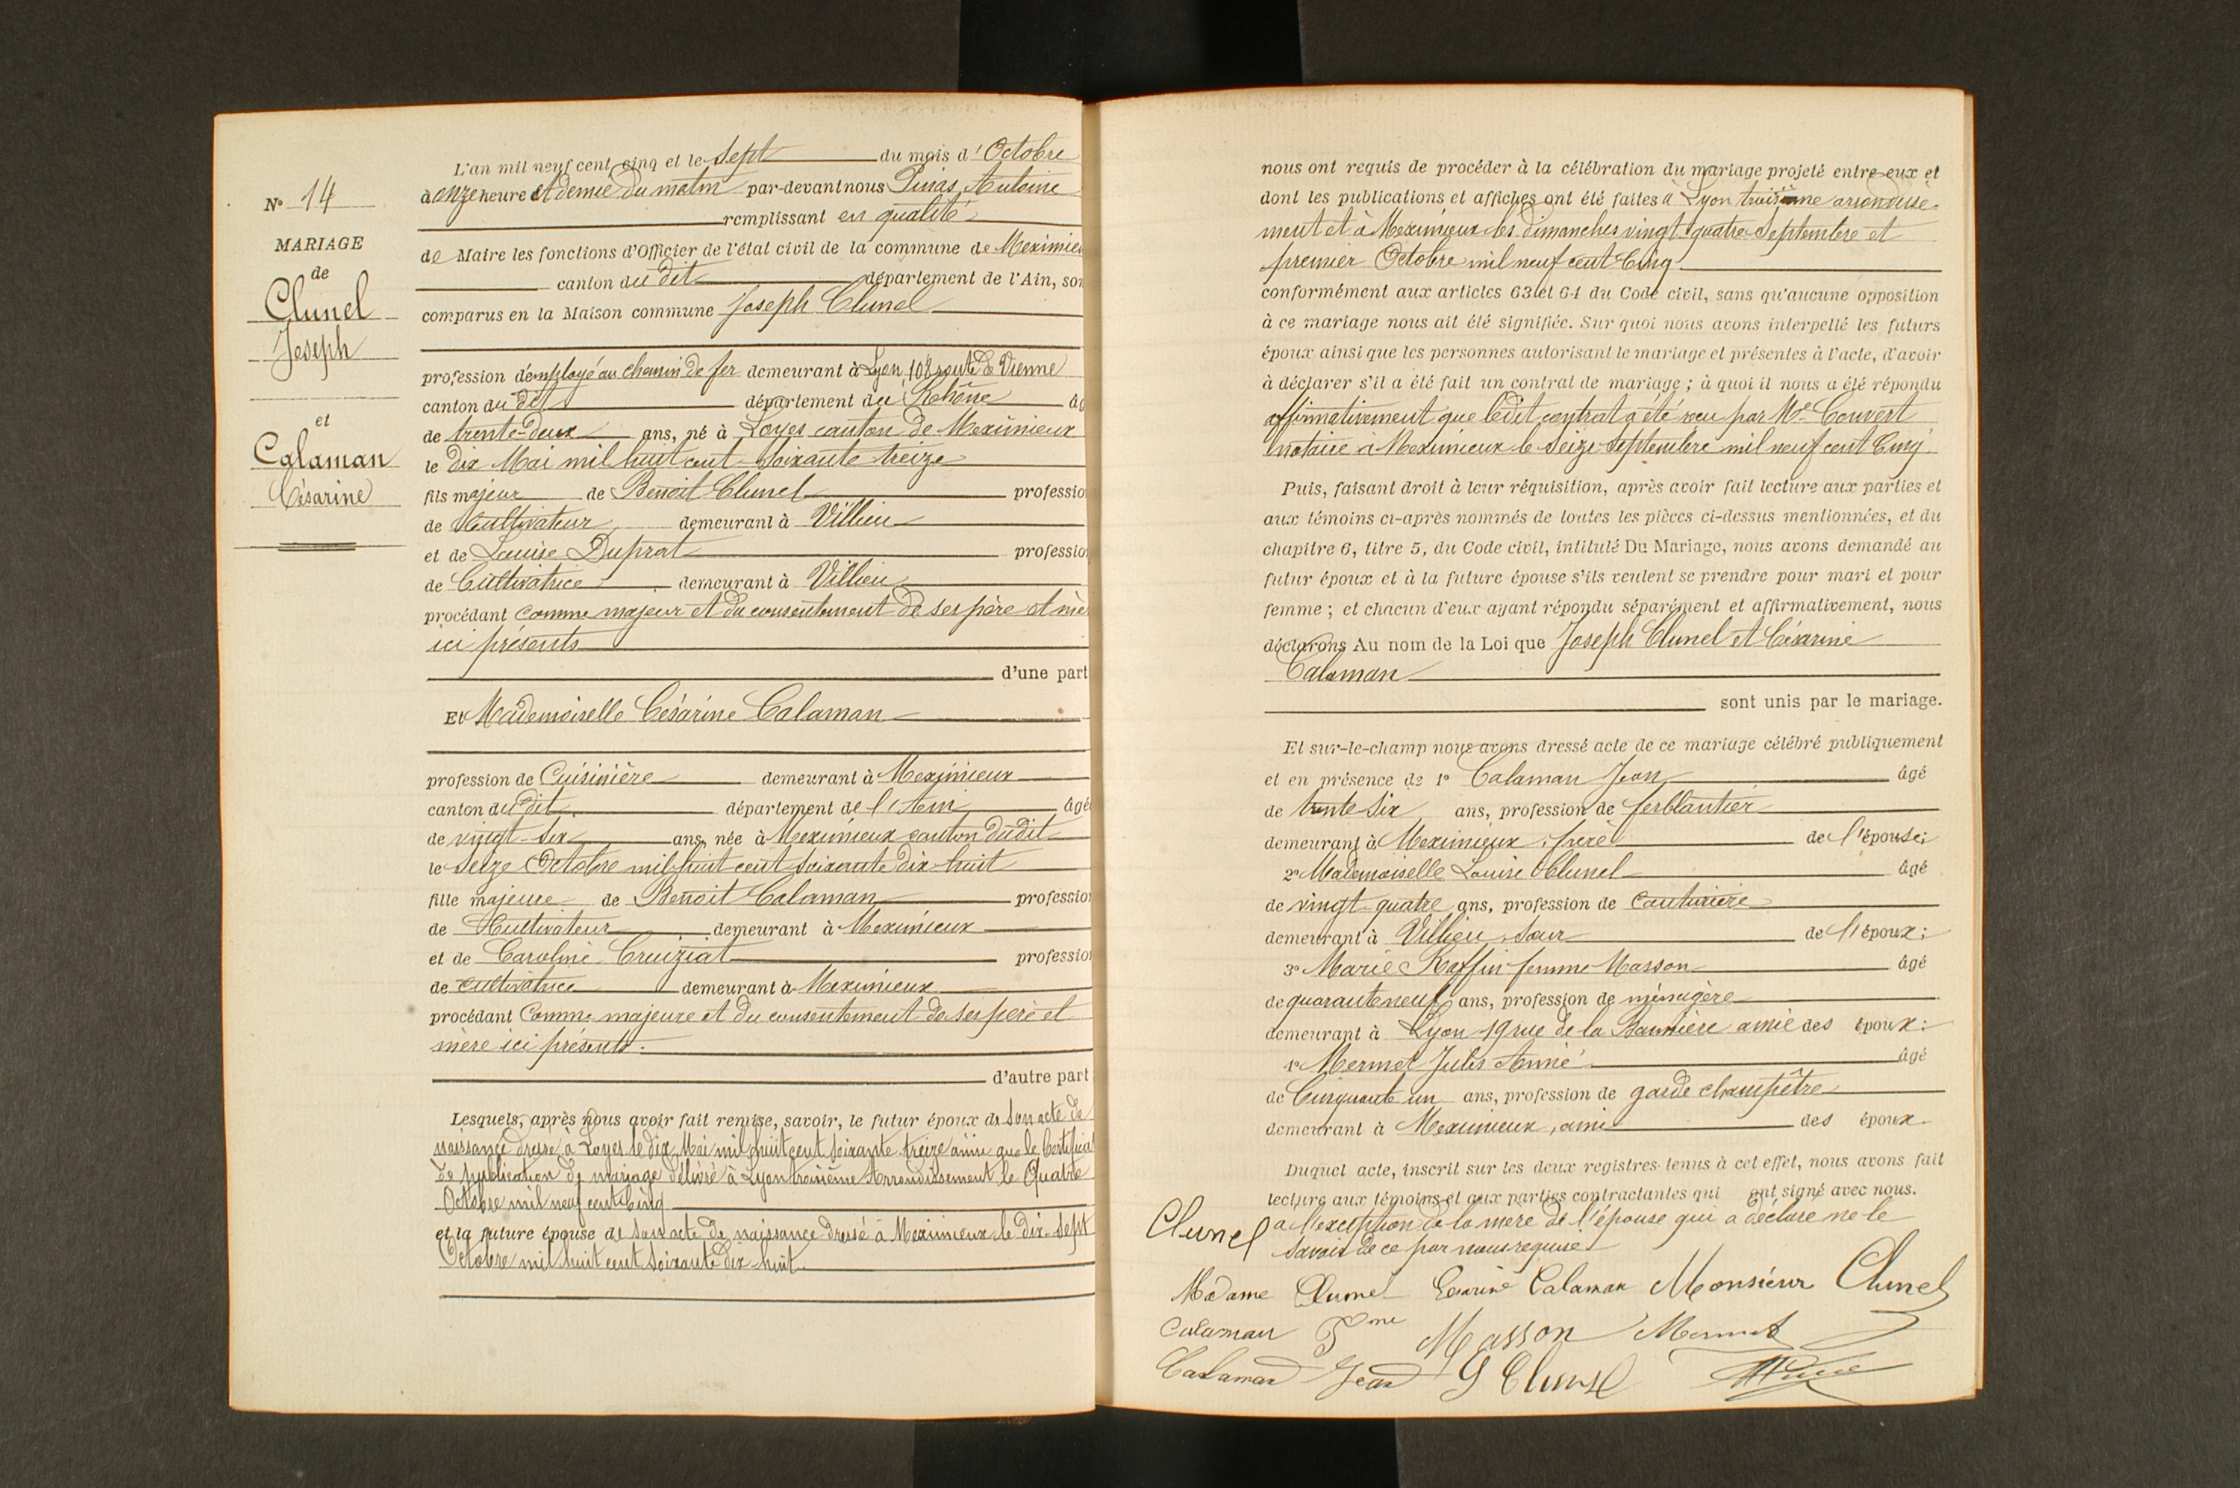 N° 14
MARIAGE
de
Clunel
Joseph
et
Calaman
Césarine
L'an mil neuf cent cinq et le sept du mois d'Octobre
à onze heure et demie du matin par-devant nous Antoine
remplissant en qualité
de Maire les fonctions d'Officier de l'état civil de la commune de Meximieu
canton du dit département de l'Ain, son
comparus en la Maison commune Joseph Clunel
profession d'employé au chemin de fer demeurant à Lyon, 108 route de Vienne
canton du dit département du Rhône âg
de trente-deux ans, né à Loyes canton de Meximieux
le dix Mai mil huit cent soixante treize
fils majeur de Benoît Clunel professio
de Cultivateur demeurant à Villieu
et de Louise Duprat professio
de Cultivatrice demeurant à Villieu
procédant comme majeur et du consentement de ses père et mè
ici présents
d'une part
Et Mademoiselle Césarine Calaman
profession de Cuisinière demeurant à Meximieux
canton du dit département de l'Ain âgé
de vingt-six ans, née à Meximieux canton dudit
le seize Octobre mil huit cent soixante dix-huit
fille majeure de Benoit Calaman profession
de Cultivateur demeurant à Meximieux
et de Caroline Cruiziat professio
de cultivatrice demeurant à Meximieux
procédant comme majeure et du consentement de ses père et
mère ici présents.
d'autre part
Lesquels, après nous avoir fait remise, savoir, le futur époux de son acte de
naissance dressé à Loyes le dix Mai mil huit cent soixante treize ainsi que le Certificat
de publication de mariage délivré à Lyon troisième Arrondissement le Quatre
Octobre mil neuf cent cinq
et la future épouse de son acte de naissance dressé à Meximieux le dix-sept
Octobre mil huit cent soixante dix-huit.
nous ont requis de procéder à la célébration du mariage projeté entre eux et
dont les publications et affiches ont été faites à Lyon troisième arrondisse-
ment et à Meximieux les dimanches vingt-quatre Septembre et
premier Octobre mil neuf cent Cinq
conformément aux articles 63 et 64 du Code civil, sans qu'aucune opposition
à ce mariage nous ait été signifiée. Sur quoi nous avons interpellé les futurs
époux ainsi que les personnes autorisant le mariage et présentes à l'acte, d'avoir
à déclarer s'il a été fait un contrat de mariage; à quoi il nous a été répondu
affirmativement que ledit contrat a été reçu par Me Convert
notaire à Meximieux le seize septembre mil neuf cent Cinq.
Puis, faisant droit à leur réquisition, après avoir fait lecture aux parties et
aux témoins ci-après nommés de toutes les pièces ci-dessus mentionnées, et du
chapitre 6, titre 5, du Code civil, intitulé Du Mariage, nous avons demandé au
futur époux et à la future épouse s'ils veulent se prendre pour mari et pour
femme; et chacun d'eux ayant répondu séparément et affirmativement, nous
déclarons Au nom de la Loi que Joseph Clunel et Césarine
Calaman
sont unis par le mariage.
Et sur-le-champ nous avons dressé acte de ce mariage célébré publiquement
et en présence de 1° Calaman Jean âgé
de trente six ans, profession de ferblantier
demeurant à Meximieux, frère de l'épouse;
2° Mademoiselle Louise Clunel âgé
de vingt-quatre ans, profession de couturière
demeurant à Villieu, sœur de l'époux;
3° Marie Raffin femme Masson âgé
de quarante neuf ans, profession de ménagère
demeurant à Lyon 19 rue de la amie des époux;
4° Mermet Jules Aimé âgé
de Cinquante un ans, profession de garde champêtre
demeurant à Meximieux, ami des époux
Duquel acte, inscrit sur les deux registres tenus à cet effet, nous avons fait
lecture aux témoins et aux parties contractantes qui ont signé avec nous.
à l'exception de la mère de l'épouse qui a déclaré ne le
savoir de ce par nous requise
Clunel
Madame Clunel Césarine Calaman Monsieur Clunel
Calaman Fme Masson Mermet
Calaman Jean Clunel